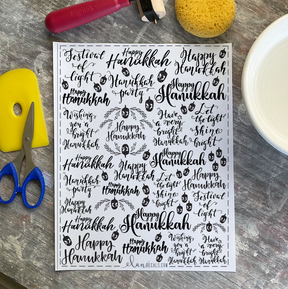 Festival
of
Light
Happy
Hanukkah
Happy
Hanukkah
Hanukkah
party
Happy
Hanukkah
Happy
Hanukkah
Wishing
you a
bright
Hanukkah
Happy
Hanukkah
Have
a very
bright
Hanukkah
Let
the light
Shine
Bright
Happy
Hanukkah
Happy
Hanukkah
Happy
Hanukkah
Hanukkah
party
Let
the light
Shine
Happy
Hanukkah
Happy
Hanukkah
Happy
Hanukkah
Festival
of
Light
Happy
Hanukkah
Happy
Hanukkah
Happy
Hanukkah
Wishing
you a
bright
Hanukkah
Have
a very
bright
Hanukkah